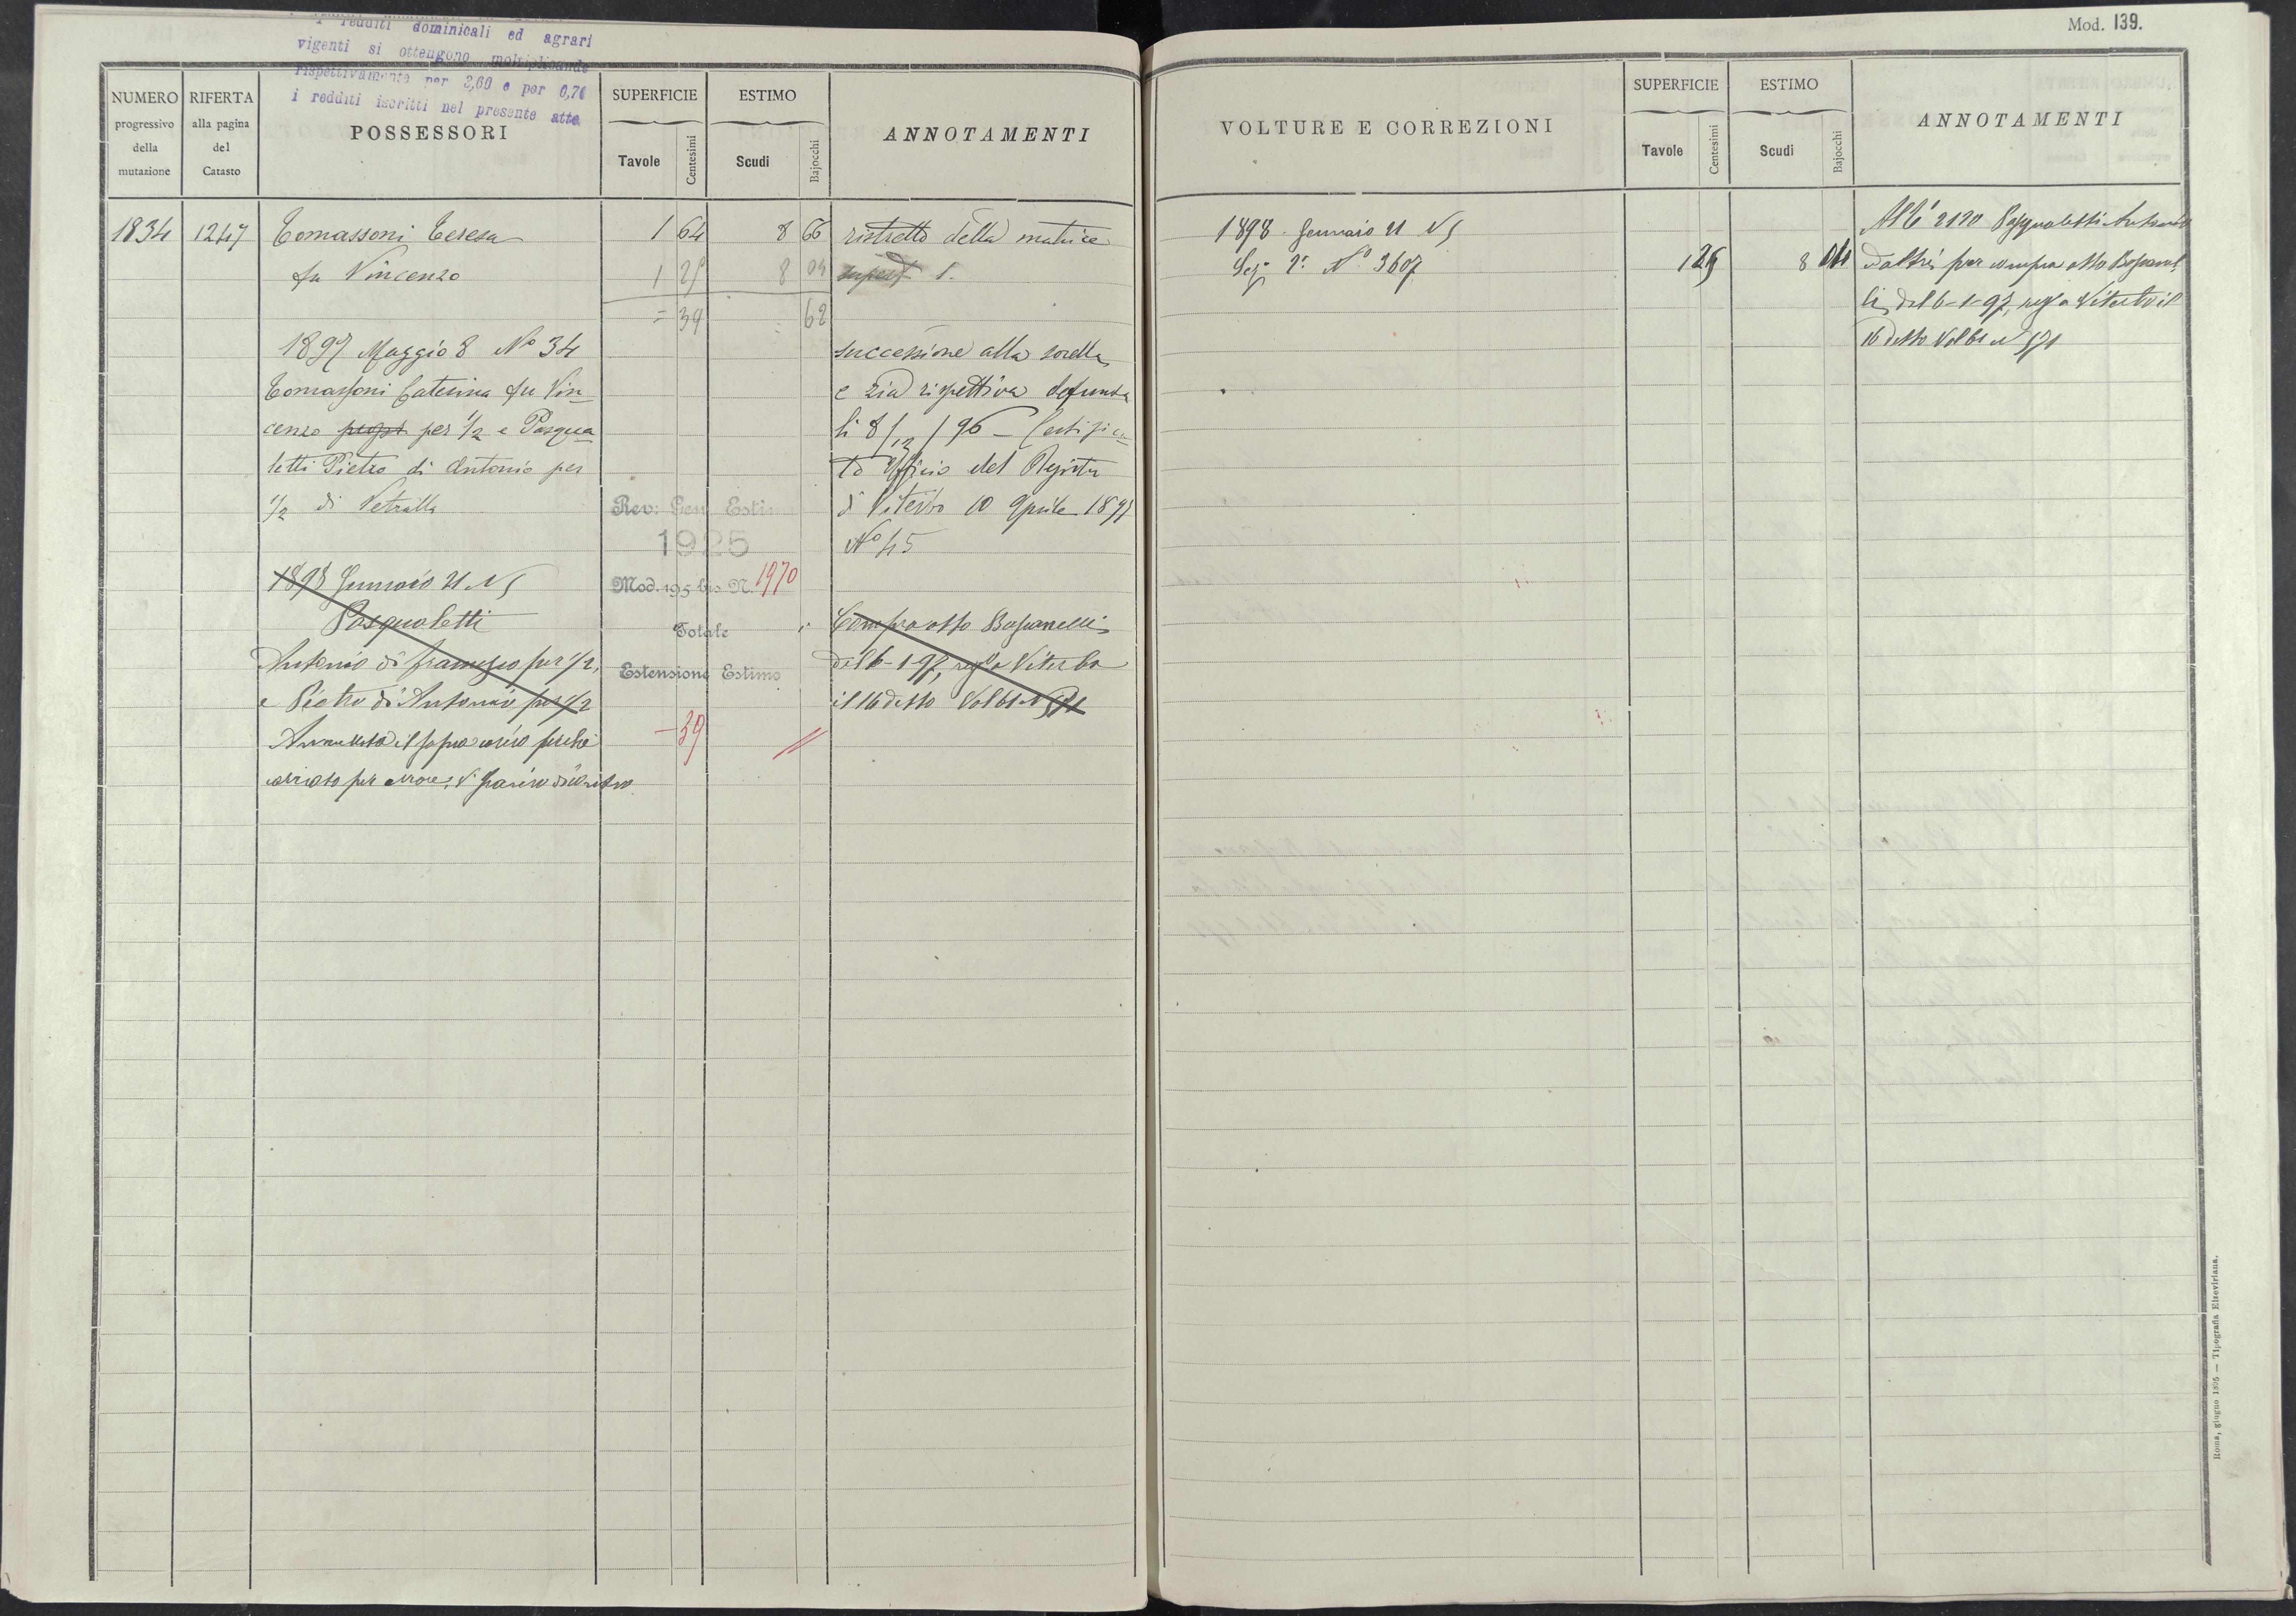 i redditi dominicali ed agrari
vigenti si ottengono moltiplicando
rispettivamente per 3,60 e per 0,70
i redditi iscritti nel presente atto
Mod. 139.
NUMERO progressivo della mutazione
RIFERTA alla pagina del Catasto
POSSESSORI
SUPERFICIE
Tavole
Centesimi
ESTIMO
Scudi
Bajocchi
ANNOTAMENTI
1834 1247 Tomassoni Teresa 1 64 8 66 ristretto della matrice
fu Vincenzo 1 25 8 04 1.
= 39 62
1897 Maggio 8 No 34 successione alla sorella
Tomassoni Caterina fu Vin- e zia rispettiva defunta
cenzo per 1/2 e Pasqua li 8/12/96 - Certifica-
letti Pietro di Antonio per to Officio del Registro
1/2 di Vetralla di Viterbo 10 Aprile 1897
No 45
Rev: Gen. Estim
1925
Mod. 195 bis N. 1970
Totale
Estensione Estimo
1898 Gennaio 21 N 5
Pasqualetti Compra atto Busanelli
Antonio di Francesco per 1/2, del 6-1-97, reg a Viterbo
e Pietro di Antonio per 1/2 il 16 detto Vol 61 N 571
Annullato il sopra carico perchè - 39 //
per errore, V.
VOLTURE E CORREZIONI
SUPERFICIE
Tavole
Centesimi
ESTIMO
Scudi
Bajocchi
ANNOTAMENTI
1898 Gennaio 21 N 5 All'é 2120 Pasqualetti Antonio
Sez. 2a No 3607 1 25 8 04 ed altri per compra atto
li, del 6-1-97, reg a Viterbo il
16 detto Vol 61 N 571
Roma, giugno 1895 — Tipografia Elzeviriana.